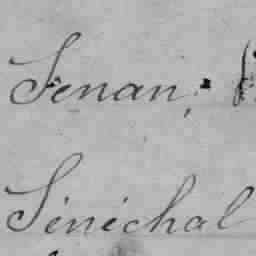 Senan,
Sénéchal